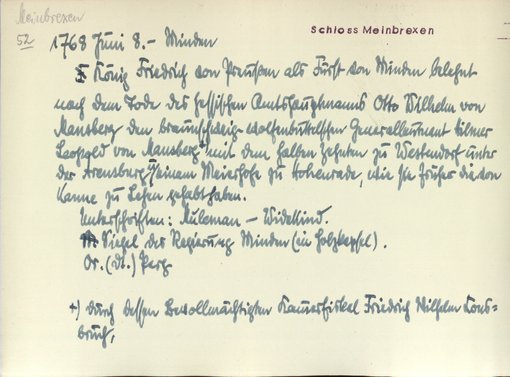 Meinbrexen
52
Schloss Meinbrexen
1768 Juni 8. – Minden
König Friedrich von Preussen als Fürst von Minden belehnt
nach dem Tode des hessischen Amtshauptmanns Otto Wilhelm von
Mansberg den braunschweig-wolfenbüttelschen Generalleutnant Hilmer
Leopold von Mansberg +) mit dem halben Zehnten zu Westendorf unter
der Arensburg, seinem Meierhofe zu Hohenrode, wie sie früher die von
Kanne zu Lehen gehabt haben.
Unterschriften: Culeman – Widekind.
Siegel der Regierung Minden (in Holzkapsel).
Or. (dt.) Perg
+) durch dessen Bevollmächtigten Kamerfiskal Friedrich Wilhelm Cons=
bruch,